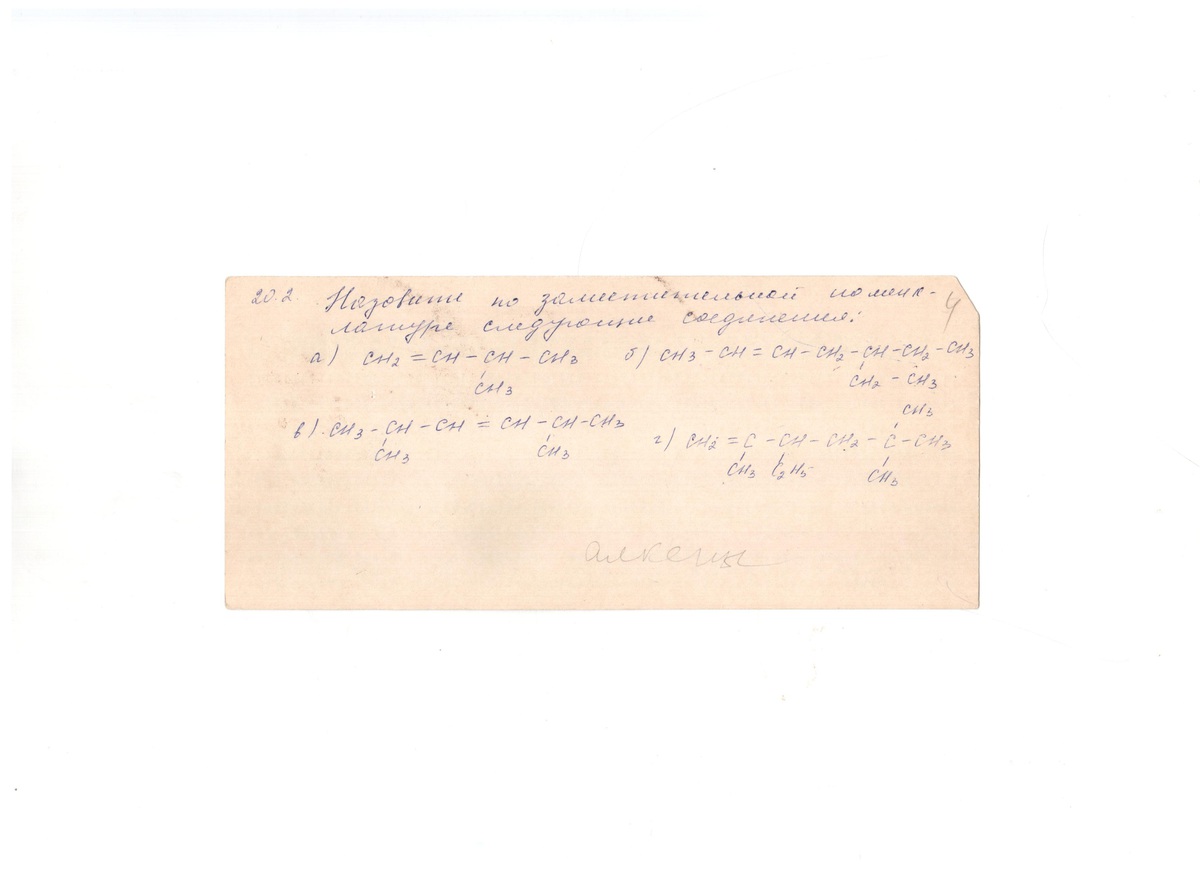 20.2. Назовите по заместительной номенк-
латуре следующие соединения:
4
а) CH₂ = CH - CH - CH₃ б) CH₃ - CH = CH - CH₂ - CH - CH₂ - CH₃
CH₃ CH₂ - CH₃
CH₃
в) CH₃ - CH - CH = CH - CH - CH₃ г) CH₂ = C - CH - CH₂ - C - CH₃
CH₃ CH₃ CH₃ C₂H₅ CH₃
алкены